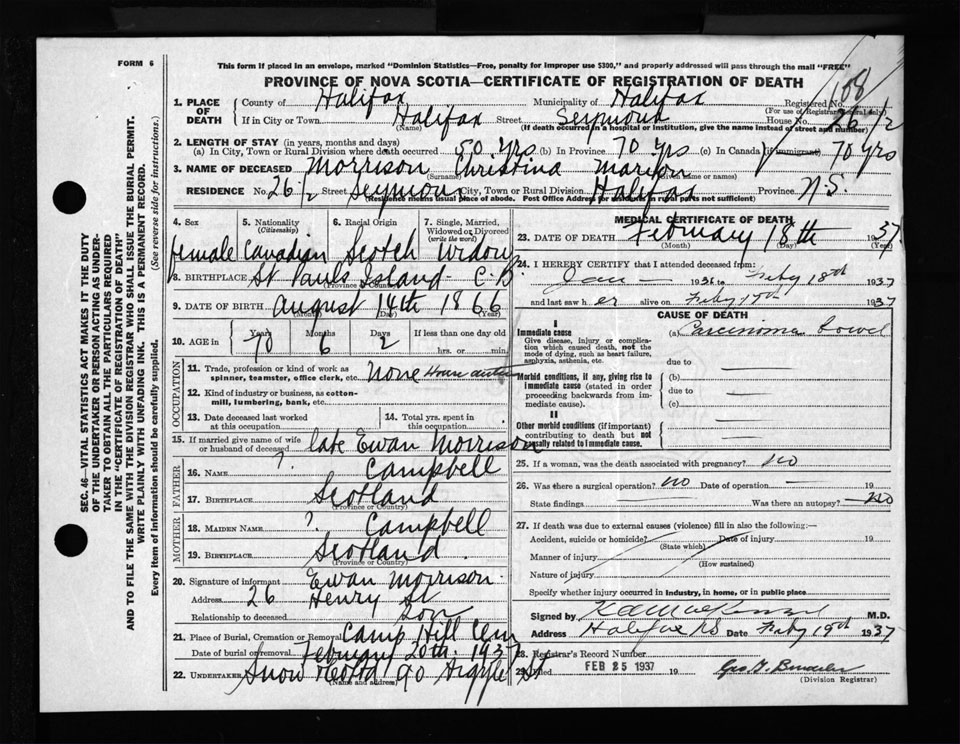 FORM 6
This form if placed in an envelope, marked "Dominion Statistics—Free, penalty for improper use $300," and properly addressed will pass through the mail "FREE"
PROVINCE OF NOVA SCOTIA—CERTIFICATE OF REGISTRATION OF DEATH
108
1. PLACE OF DEATH County of Halifax Municipality of Halifax Registered No.
(For use of Registrar General only)
If in City or Town Halifax Street Seymour House No. 26 1/2
(Name) (If death occurred in a hospital or institution, give the name instead of street and number)
2. LENGTH OF STAY (in years, months and days)
(a) In City, Town or Rural Division where death occurred 50 yrs (b) In Province 70 yrs (c) In Canada (if immigrant) 70 yrs
3. NAME OF DECEASED Morrison Christina Marion
(Surname) (Given name or names)
RESIDENCE No. 26 1/2 Street Seymour City, Town or Rural Division Halifax Province N.S.
(Residence means usual place of abode. Post Office Address for residents in rural parts not sufficient)
4. Sex 5. Nationality (Citizenship) 6. Racial Origin 7. Single, Married, Widowed or Divorced (write the word)
female Canadian Scotch Widow
8. BIRTHPLACE St Pauls Island - C.B
(Province or Country)
9. DATE OF BIRTH August 14th 1866
(Month) (Day) (Year)
10. AGE in Years Months Days If less than one day old
70 6 2 hrs. or min.
OCCUPATION
11. Trade, profession or kind of work as spinner, teamster, office clerk, etc. none House duties
12. Kind of industry or business, as cotton-mill, lumbering, bank, etc.
13. Date deceased last worked at this occupation
14. Total yrs. spent in this occupation
15. If married give name of wife or husband of deceased late Ewan Morrison
FATHER
16. NAME ? Campbell
17. BIRTHPLACE Scotland
(Province or Country)
MOTHER
18. MAIDEN NAME ? Campbell
19. BIRTHPLACE Scotland
(Province or Country)
20. Signature of informant Ewan Morrison
Address 26 Henry St
Relationship to deceased Son
21. Place of Burial, Cremation or Removal Camp Hill Cem
Date of burial or removal February 20th 1937
22. UNDERTAKER Snow & Co Ltd 90 Argyle St
(Name and address)
MEDICAL CERTIFICATE OF DEATH
23. DATE OF DEATH February 18th 1937
(Month) (Day) (Year)
24. I HEREBY CERTIFY that I attended deceased from:
Jan — 1936 to Feby 18th 1937
and last saw her alive on Feby 17th 1937
CAUSE OF DEATH
I
Immediate cause (a) Carcinoma bowel
Give disease, injury or complication which caused death, not the mode of dying, such as heart failure, asphyxia, asthenia, etc.
due to
Morbid conditions, if any, giving rise to immediate cause (stated in order proceeding backwards from immediate cause).
(b)
due to
(c)
II
Other morbid conditions (if important) contributing to death but not causally related to immediate cause.
25. If a woman, was the death associated with pregnancy? no
26. Was there a surgical operation? no Date of operation — 19
State findings Was there an autopsy? no
27. If death was due to external causes (violence) fill in also the following:—
Accident, suicide or homicide? Date of injury 19
(State which)
Manner of injury
(How sustained)
Nature of injury
Specify whether injury occurred in Industry, in home, or in public place
Signed by K A MacKenzie M.D.
Address Halifax NS Date Feby 19th 1937
28. Registrar's Record Number
29. Filed FEB 25 1937 19
(Division Registrar)
SEC. 46—VITAL STATISTICS ACT MAKES IT THE DUTY
OF THE UNDERTAKER OR PERSON ACTING AS UNDERTAKER TO OBTAIN ALL THE PARTICULARS REQUIRED
IN THE "CERTIFICATE OF REGISTRATION OF DEATH"
AND TO FILE THE SAME WITH THE DIVISION REGISTRAR WHO SHALL ISSUE THE BURIAL PERMIT.
WRITE PLAINLY WITH UNFADING INK. THIS IS A PERMANENT RECORD.
Every item of Information should be carefully supplied. (See reverse side for instructions.)